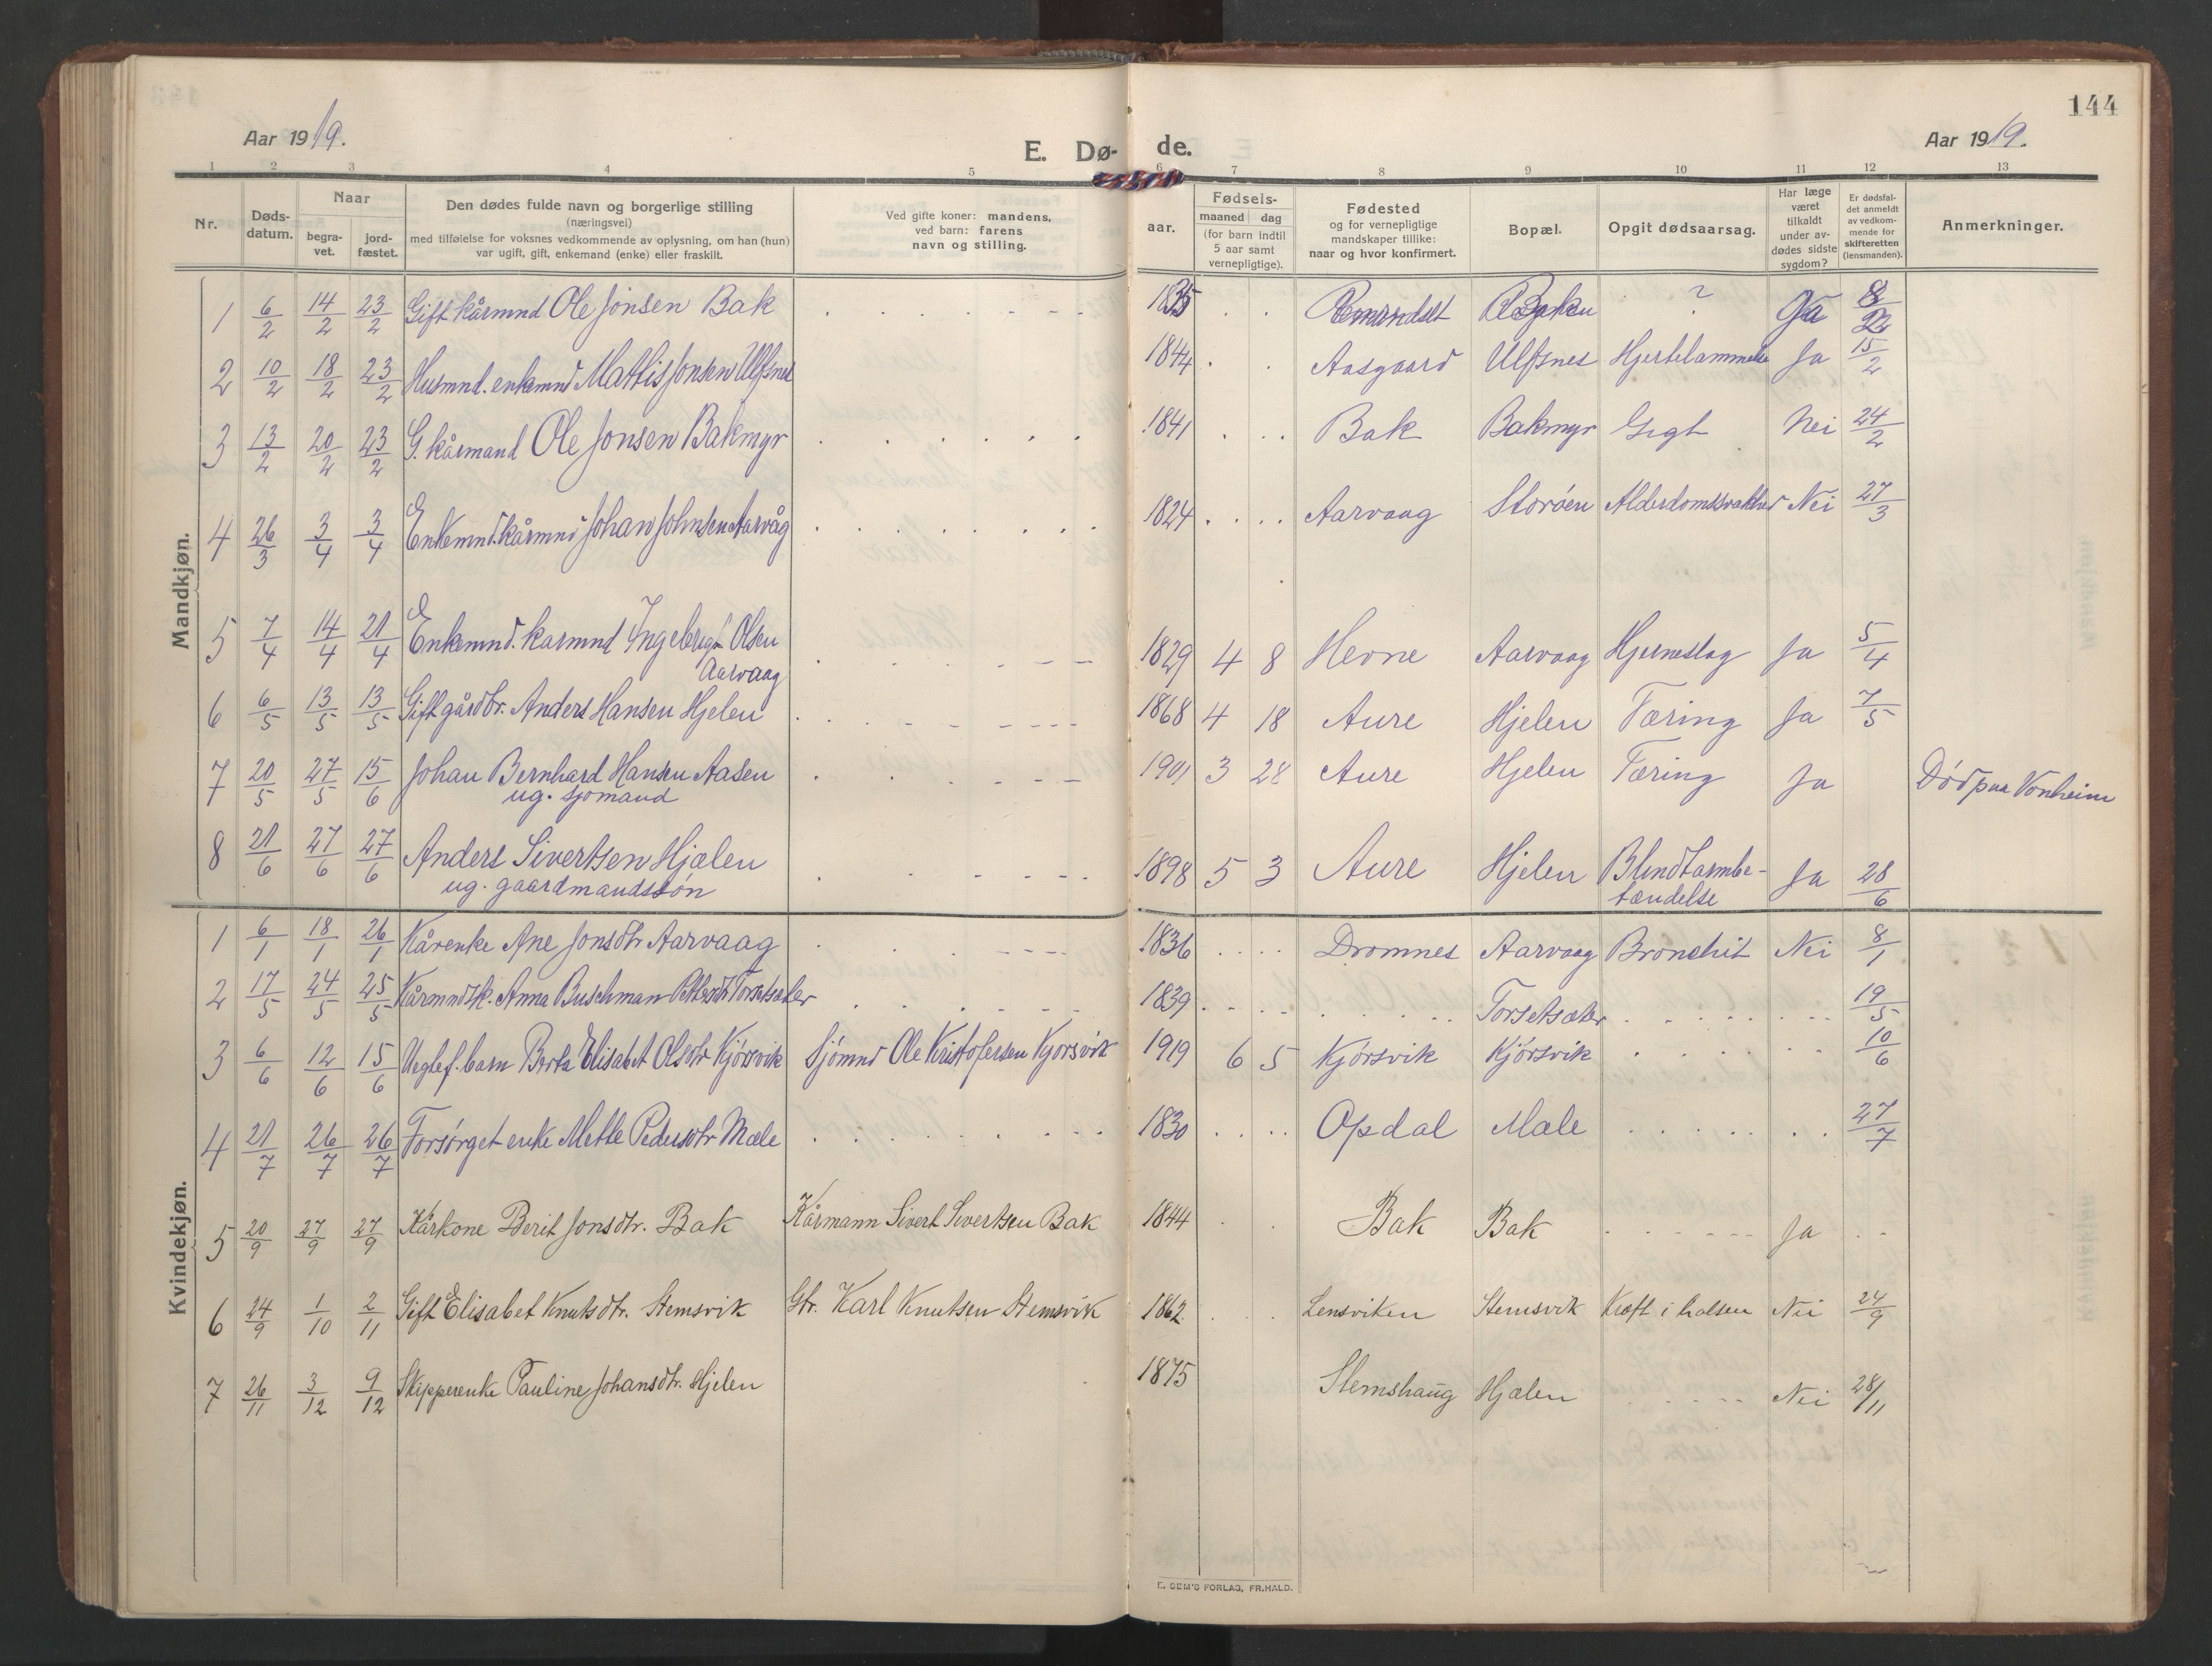 144
Aar 1919.
E. Dø- de.
Aar 1919.
1 2 3 4 5 6 7 8 9 10 11 12 13
Nr.
Døds-datum.
Naar
begra-vet.
jord-fæstet.
Den dødes fulde navn og borgerlige stilling
(næringsvei)
med tilføielse for voksnes vedkommende av oplysning, om han (hun)
var ugift, gift, enkemand (enke) eller fraskilt.
Ved gifte koner: mandens,
ved barn: farens
navn og stilling.
Fødsels-
aar.
maaned dag
(for barn indtil
5 aar samt
vernepligtige).
Fødested
og for vernepligtige
mandskaper tillike:
naar og hvor konfirmert.
Bopæl.
Opgit dødsaarsag.
Har læge
været
tilkaldt
under av-
dødes sidste
sygdom?
Er dødsfal-
det anmeldt
av vedkom-
mende for
skifteretten
(lensmanden).
Anmerkninger.
Mandkjøn.
1 6/2 14/2 23/2 Gift kårmnd Ole Jonsen Bak 1835 ? Ja
2 10/2 18/2 23/2 Husmnd. enkemnd Mattis Jonsen Ulfsnes 1844 Aasgaard Ulfsnes Hjertelammelse Ja 15/2
3 13/2 20/2 23/2 G. kårmand Ole Jonsen Bakmyr 1841 Bak Bakmyr Gigt Nei 24/2
4 26/3 3/4 3/4 Enkemnd. kårmnd Johan Johnsen Aarvåg 1824 Aarvaag Storøen Alderdomssvakhed Nei 27/3
5 7/4 14/4 21/4 Enkemnd. karmnd Ingebrigt Olsen 1829 4 8 Hevne Aarvaag Hjerneslag Ja 5/4
Aarvaag
6 6/5 13/5 13/5 Gift gårdbr. Anders Hansen Hjelen 1868 4 18 Aure Hjelen Tæring Ja 7/5
7 20/5 27/5 15/6 Johan Bernhard Hansen Aasen 1901 3 28 Aure Hjelen Tæring Ja Død paa Vonheim
ug. sjømand
8 21/6 27/6 27/6 Anders Sivertsen Hjælen 1898 5 3 Aure Hjelen Blindtarmbe- Ja 28/6
ug. gaardmandssøn tændelse
Kvindekjøn.
1 6/1 18/1 26/1 Kårenke Ane Jonsdtr Aarvaag 1836 Dromnes Aarvaag Bronchit Nei 8/1
2 17/5 24/5 25/5 Kårmndsk. Anna Buschman Pettersdtr Torsetsæter 1839 Torsetsæter 19/5
3 6/6 12/6 15/6 Uegtef. barn Berta Elisabet Olsdtr Kjørsvik Sjømnd Ole Kristofersen Kjørsvik 1919 6 5 Kjørsvik Kjørsvik 10/6
4 21/7 26/7 26/7 Forsørget enke Mette Pedersdtr Mæle 1830 Opdal Mæle 27/7
5 20/9 27/9 27/9 Kårkone Berit Jonsdtr. Bak Kårmann Sivert Sivertsen Bak 1844 Bak Bak Ja
6 24/9 1/10 2/11 Gift Elisabet Knutsdtr. Stemsvik Gbr. Karl Knutsen Stemsvik 1862 Lensviken Stemsvik Kræft i halsen Nei 24/9
7 26/11 3/12 9/12 Skipperenke Pauline Johansdtr. Hjelen 1875 Stemshaug Hjælen Nei 28/11
E. SEM'S FORLAG, FR.HALD.